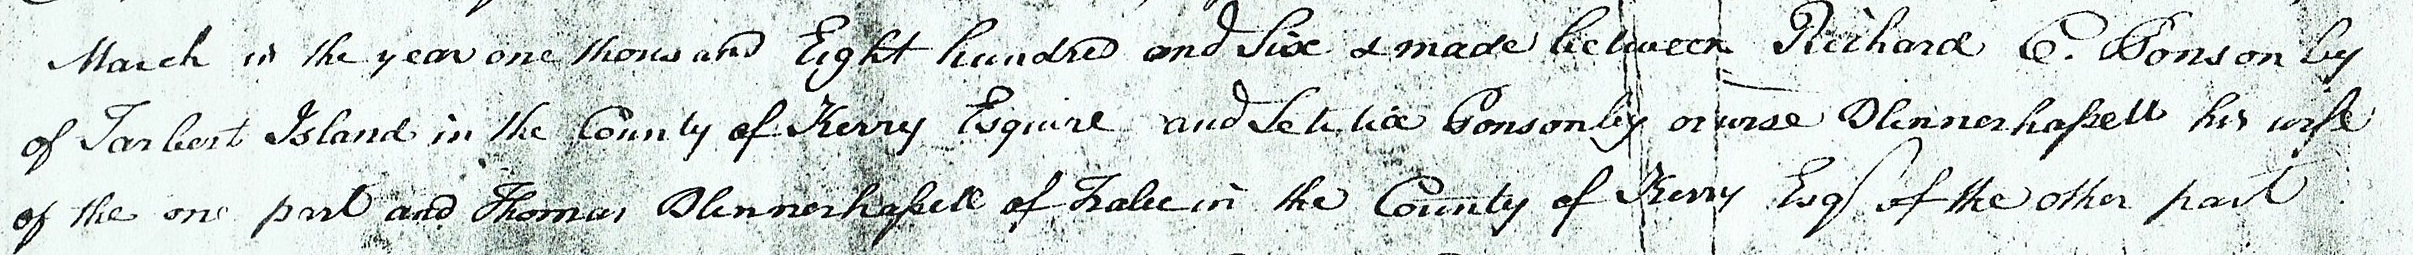 March in the year one thousand Eight hundred and Six & made between Richard C. Ponsonby
of Tarbert Island in the County of Kerry Esquire and Letitia Ponsonby orwise Blennerhassett his wife
of the one part and Thomas Blennerhassett of Tralee in the County of Kerry Esq of the other part